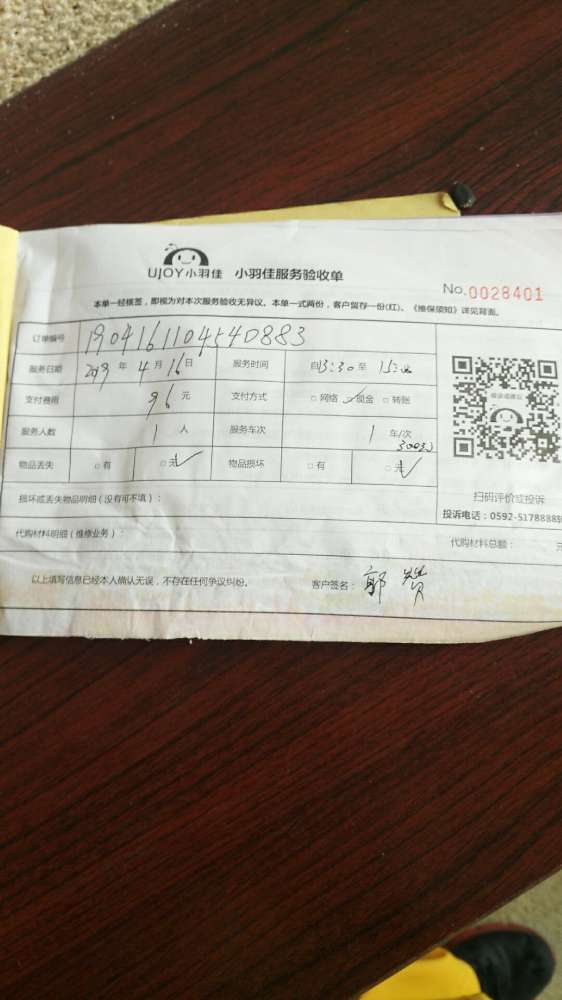 UJOY小羽佳 小羽佳服务验收单
No.0028401
本单一经横签，即视为对本次服务验收无异议。本单一式两份，客户留存一份(红)。《维保须知》详见背面。
订单编号 1904161104540883
服务日期 2019 年 4 月 16 日 服务时间 自13:30 至
支付费用 96 元 支付方式 □ 网络 □现金 □ 转账
服务人数 1 人 服务车次 1 车/次
物品丢失 □ 有 □ 无 物品损坏 □ 有 □ 无
扫码评价或投诉
投诉电话：0592-5178888
损坏或丢失物品明细（没有可不填）：
代购材料明细（维修业务）： 代购材料总额： 元
以上填写信息已经本人确认无误，不存在任何争议纠纷。 客户签名：郭赞